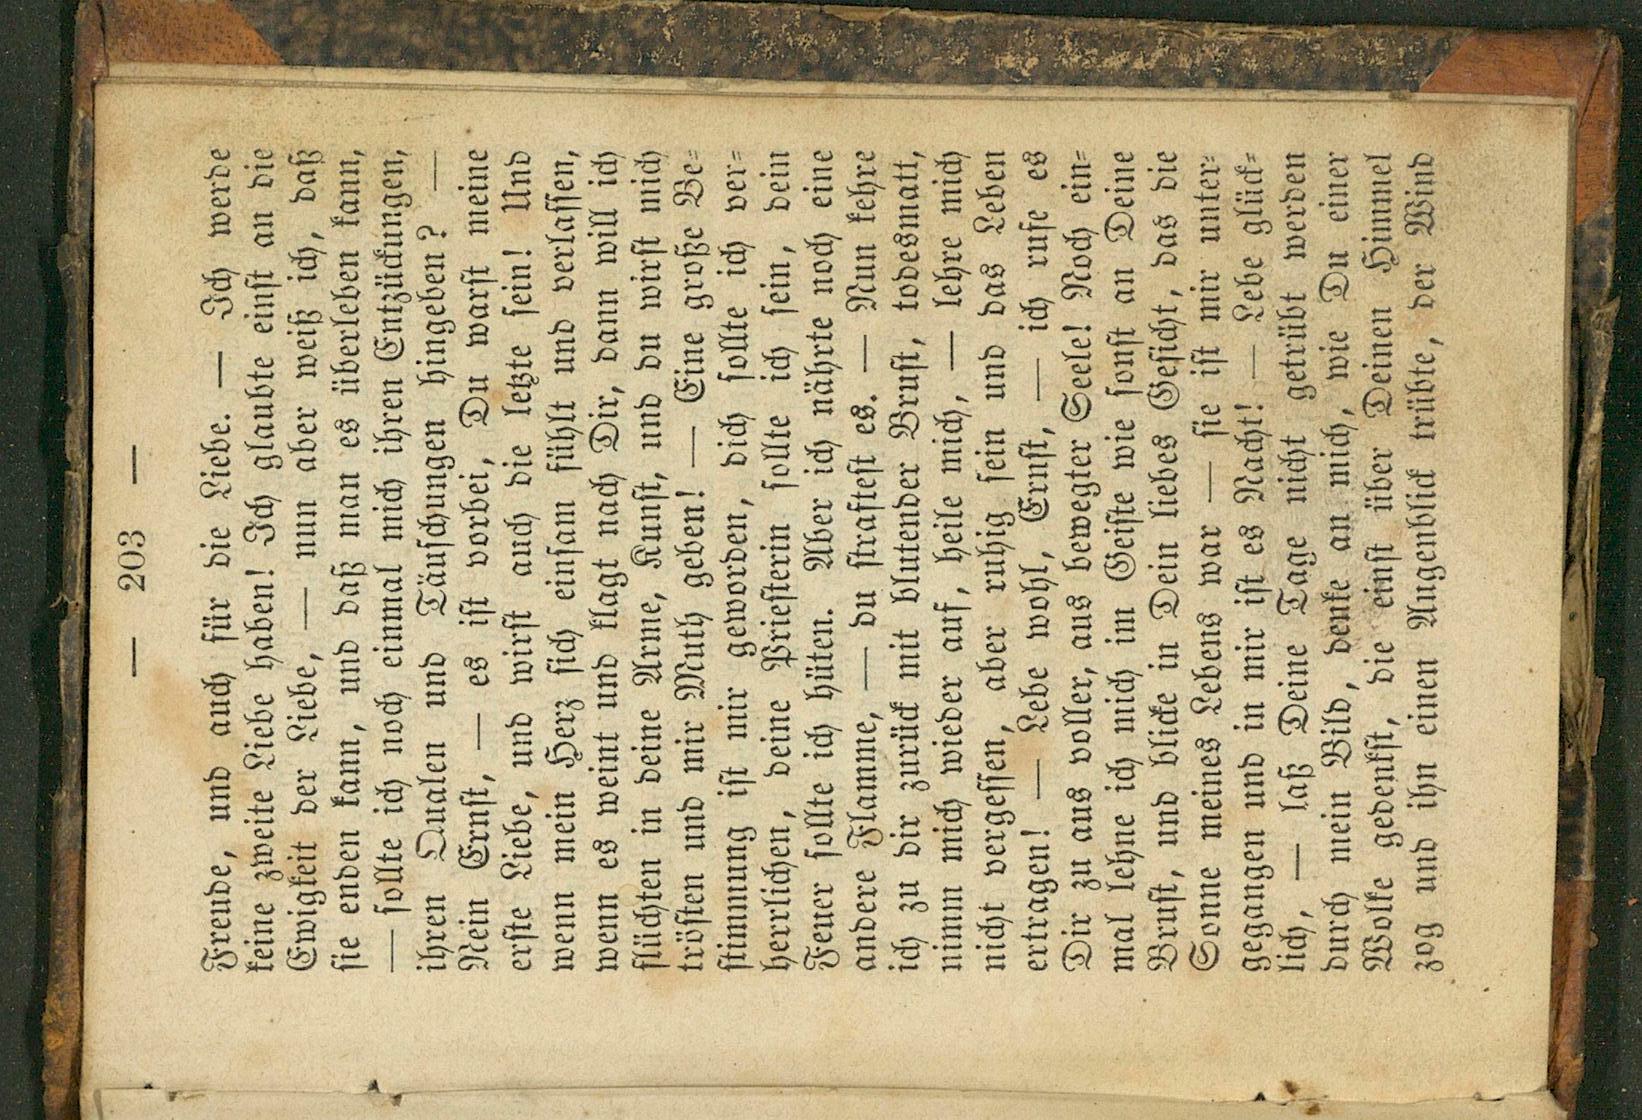 — 203 —
Freude, und auch für die Liebe. — Ich werde
keine zweite Liebe haben! Ich glaubte einst an die
Ewigkeit der Liebe, — nun aber weiß ich, daß
sie enden kann, und daß man es überleben kann,
— sollte ich noch einmal mich ihren Entzückungen,
ihren Qualen und Täuschungen hingeben? —
Nein Ernst, — es ist vorbei, Du warst meine
erste Liebe, und wirst auch die letzte sein! Und
wenn mein Herz sich einsam fühlt und verlassen,
wenn es weint und klagt nach Dir, dann will ich
flüchten in deine Arme, Kunst, und du wirst mich
trösten und mir Muth geben! — Eine große Be=
stimmung ist mir geworden, dich sollte ich ver=
herrlichen, deine Priesterin sollte ich sein, dein
Feuer sollte ich hüten. Aber ich nährte noch eine
andere Flamme, — du straftest es. — Nun kehre
ich zu dir zurück mit blutender Brust, todesmatt,
nimm mich wieder auf, heile mich, — lehre mich
nicht vergessen, aber ruhig sein und das Leben
ertragen! — Lebe wohl, Ernst, — ich rufe es
Dir zu aus voller, aus bewegter Seele! Noch ein=
mal lehne ich mich im Geiste wie sonst an Deine
Brust, und blicke in Dein liebes Gesicht, das die
Sonne meines Lebens war — sie ist mir unter=
gegangen und in mir ist es Nacht! — Lebe glück=
lich, — laß Deine Tage nicht getrübt werden
durch mein Bild, denke an mich, wie Du einer
Wolke gedenkst, die einst über Deinen Himmel
zog und ihn einen Augenblick trübte, der Wind